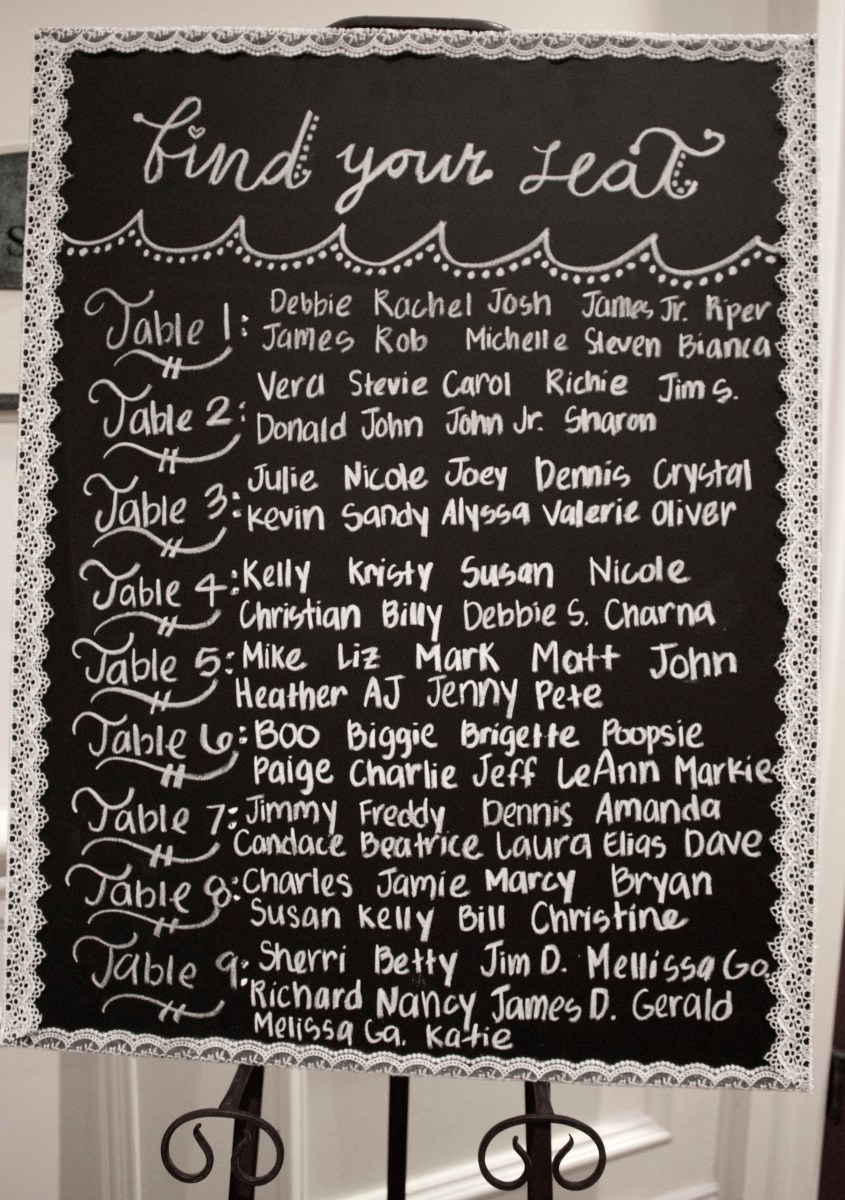 find your seat
Table 1: Debbie Rachel Josh James Jr. Piper
James Rob Michelle Steven Bianca
Table 2: Vera Stevie Carol Richie Jim S.
Donald John John Jr. Sharon
Table 3: Julie Nicole Joey Dennis Crystal
Kevin Sandy Alyssa Valerie Oliver
Table 4: Kelly Kristy Susan Nicole
Christian Billy Debbie S. Charna
Table 5: Mike Liz Mark Matt John
Heather AJ Jenny Pete
Table 6: Boo Biggie Brigette Poopsie
Paige Charlie Jeff LeAnn Markie
Table 7: Jimmy Freddy Dennis Amanda
Candace Beatrice Laura Elias Dave
Table 8: Charles Jamie Marcy Bryan
Susan Kelly Bill Christine
Table 9: Sherri Betty Jim D. Mellissa Go.
Richard Nancy James D. Gerald
Melissa Ga. Katie